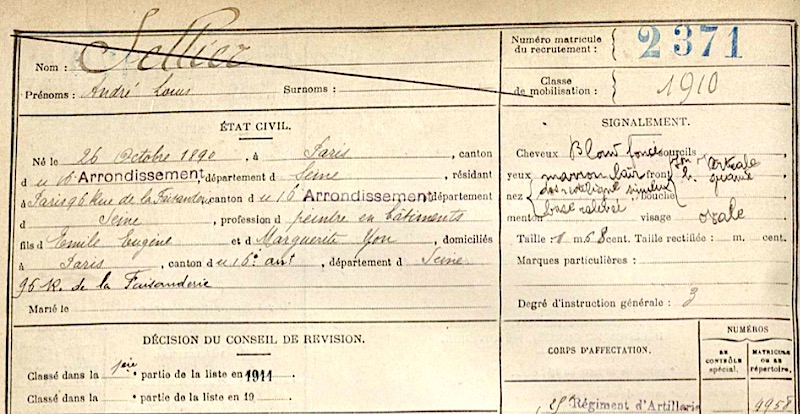 Nom : Sellier
Prénoms : André Louis Surnoms :
Numéro matricule du recrutement : 2371
Classe de mobilisation : 1910
ÉTAT CIVIL.
Né le 26 Octobre 1890, à Paris, canton
du 16e Arrondissement, département d Seine, résidant
à Paris 96 rue de la Faisanderie canton du 16e Arrondissement département
d Seine, profession d peintre en bâtiments
fils d'Emile Eugène et d Marguerite Yon, domiciliés
à Paris, canton du 16e arrt, département d Seine
96 R. de la Faisanderie
Marié le
SIGNALEMENT.
Cheveux Blond foncé sourcils
yeux marron clair front
nez dos rectiligne sinueux bouche
base relevé
menton visage ovale
Taille : 1 m. 68 cent. Taille rectifiée : m. cent.
Marques particulières :
Degré d'instruction générale : 3
DÉCISION DU CONSEIL DE REVISION.
Classé dans la 1ère partie de la liste en 1911
Classé dans la partie de la liste en 19
CORPS D'AFFECTATION.
NUMÉROS
AU CONTRÔLE spécial.
MATRICULE OU AU répertoire.
Régiment d'Artillerie
9958